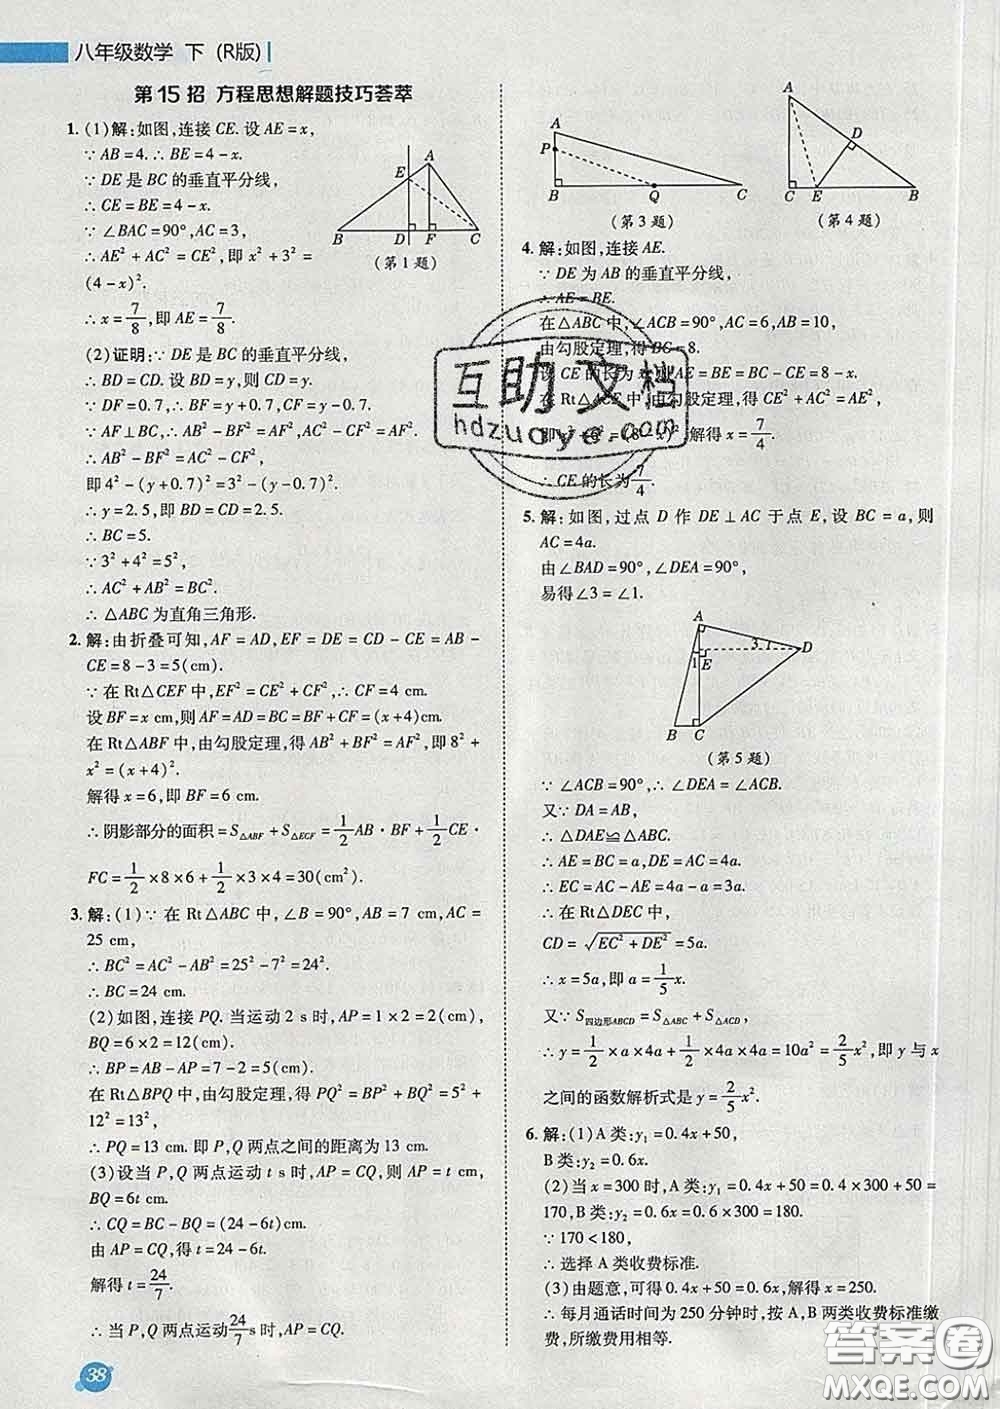 八年级数学 下 (R版)
第15招 方程思想解题技巧荟萃
1. (1)解:如图,连接 CE. 设 AE=x,
∵ AB=4. ∴ BE=4-x.
∵ DE 是 BC 的垂直平分线,
∴ CE=BE=4-x.
∵ ∠BAC=90°,AC=3,
∴ AE²+AC²=CE²,即 x²+3²=
(4-x)².
∴ x=7/8,即 AE=7/8.
A
E
B
D
F
C
(第1题)
(2)证明:∵ DE 是 BC 的垂直平分线,
∴ BD=CD. 设 BD=y,则 CD=y.
∵ DF=0.7,∴ BF=y+0.7,CF=y-0.7.
∵ AF⊥BC,∴ AB²-BF²=AF²,AC²-CF²=AF².
∴ AB²-BF²=AC²-CF²,
即 4²-(y+0.7)²=3²-(y-0.7)².
∴ y=2.5,即 BD=CD=2.5.
∴ BC=5.
∵ 3²+4²=5²,
∴ AC²+AB²=BC².
∴ △ABC 为直角三角形.
2. 解:由折叠可知,AF=AD,EF=DE=CD-CE=AB-
CE=8-3=5(cm).
∵ 在 Rt△CEF 中,EF²=CE²+CF²,∴ CF=4 cm.
设 BF=x cm,则 AF=AD=BC=BF+CF=(x+4)cm.
在 Rt△ABF 中,由勾股定理,得 AB²+BF²=AF²,即 8²+
x²=(x+4)².
解得 x=6,即 BF=6 cm.
∴ 阴影部分的面积=S△ABF+S△ECF=1/2 AB·BF+1/2 CE·
FC=1/2×8×6+1/2×3×4=30(cm²).
3. 解:(1)∵ 在 Rt△ABC 中,∠B=90°,AB=7 cm,AC=
25 cm,
∴ BC²=AC²-AB²=25²-7²=24².
∴ BC=24 cm.
(2)如图,连接 PQ. 当运动 2 s 时,AP=1×2=2(cm),
BQ=6×2=12(cm).
∴ BP=AB-AP=7-2=5(cm).
在 Rt△BPQ 中,由勾股定理,得 PQ²=BP²+BQ²=5²+
12²=13²,
∴ PQ=13 cm. 即 P,Q 两点之间的距离为 13 cm.
(3)设当 P,Q 两点运动 t s 时,AP=CQ,则 AP=t cm,
BQ=6t cm.
∴ CQ=BC-BQ=(24-6t)cm.
由 AP=CQ,得 t=24-6t.
解得 t=24/7.
∴ 当 P,Q 两点运动 24/7 s 时,AP=CQ.
38
A
P
B
Q
C
(第3题)
A
D
C
E
B
(第4题)
4. 解:如图,连接 AE.
∵ DE 为 AB 的垂直平分线,
∴ AE=BE.
在 △ABC 中,∠ACB=90°,AC=6,AB=10,
由勾股定理,得 BC=8.
设 CE 的长为 x,则 AE=BE=BC-CE=8-x.
在 Rt△ACE 中,由勾股定理,得 CE²+AC²=AE²,
即 x²+6²=(8-x)²,解得 x=7/4.
∴ CE 的长为 7/4.
互助文档
hdzuoye.com
5. 解:如图,过点 D 作 DE⊥AC 于点 E,设 BC=a,则
AC=4a.
由 ∠BAD=90°,∠DEA=90°,
易得∠3=∠1.
A
3
D
1
E
B
C
(第5题)
∵ ∠ACB=90°,∴ ∠DEA=∠ACB.
又∵ DA=AB,
∴ △DAE≌△ABC.
∴ AE=BC=a,DE=AC=4a.
∴ EC=AC-AE=4a-a=3a.
∴ 在 Rt△DEC 中,
CD=√(EC²+DE²)=5a.
∴ x=5a,即 a=1/5 x.
又∵ S四边形ABCD=S△ABC+S△ACD,
∴ y=1/2×a×4a+1/2×4a×4a=10a²=2/5 x²,即 y 与 x
之间的函数解析式是 y=2/5 x².
6. 解:(1)A 类:y₁=0.4x+50,
B 类:y₂=0.6x.
(2)当 x=300 时,A 类:y₁=0.4x+50=0.4×300+50=
170,B 类:y₂=0.6x=0.6×300=180.
∵ 170<180,
∴ 选择 A 类收费标准.
(3)由题意,可得 0.4x+50=0.6x,解得 x=250.
∴ 每月通话时间为 250 分钟时,按 A,B 两类收费标准缴
费,所缴费用相等.
答案圈
MXQE.COM